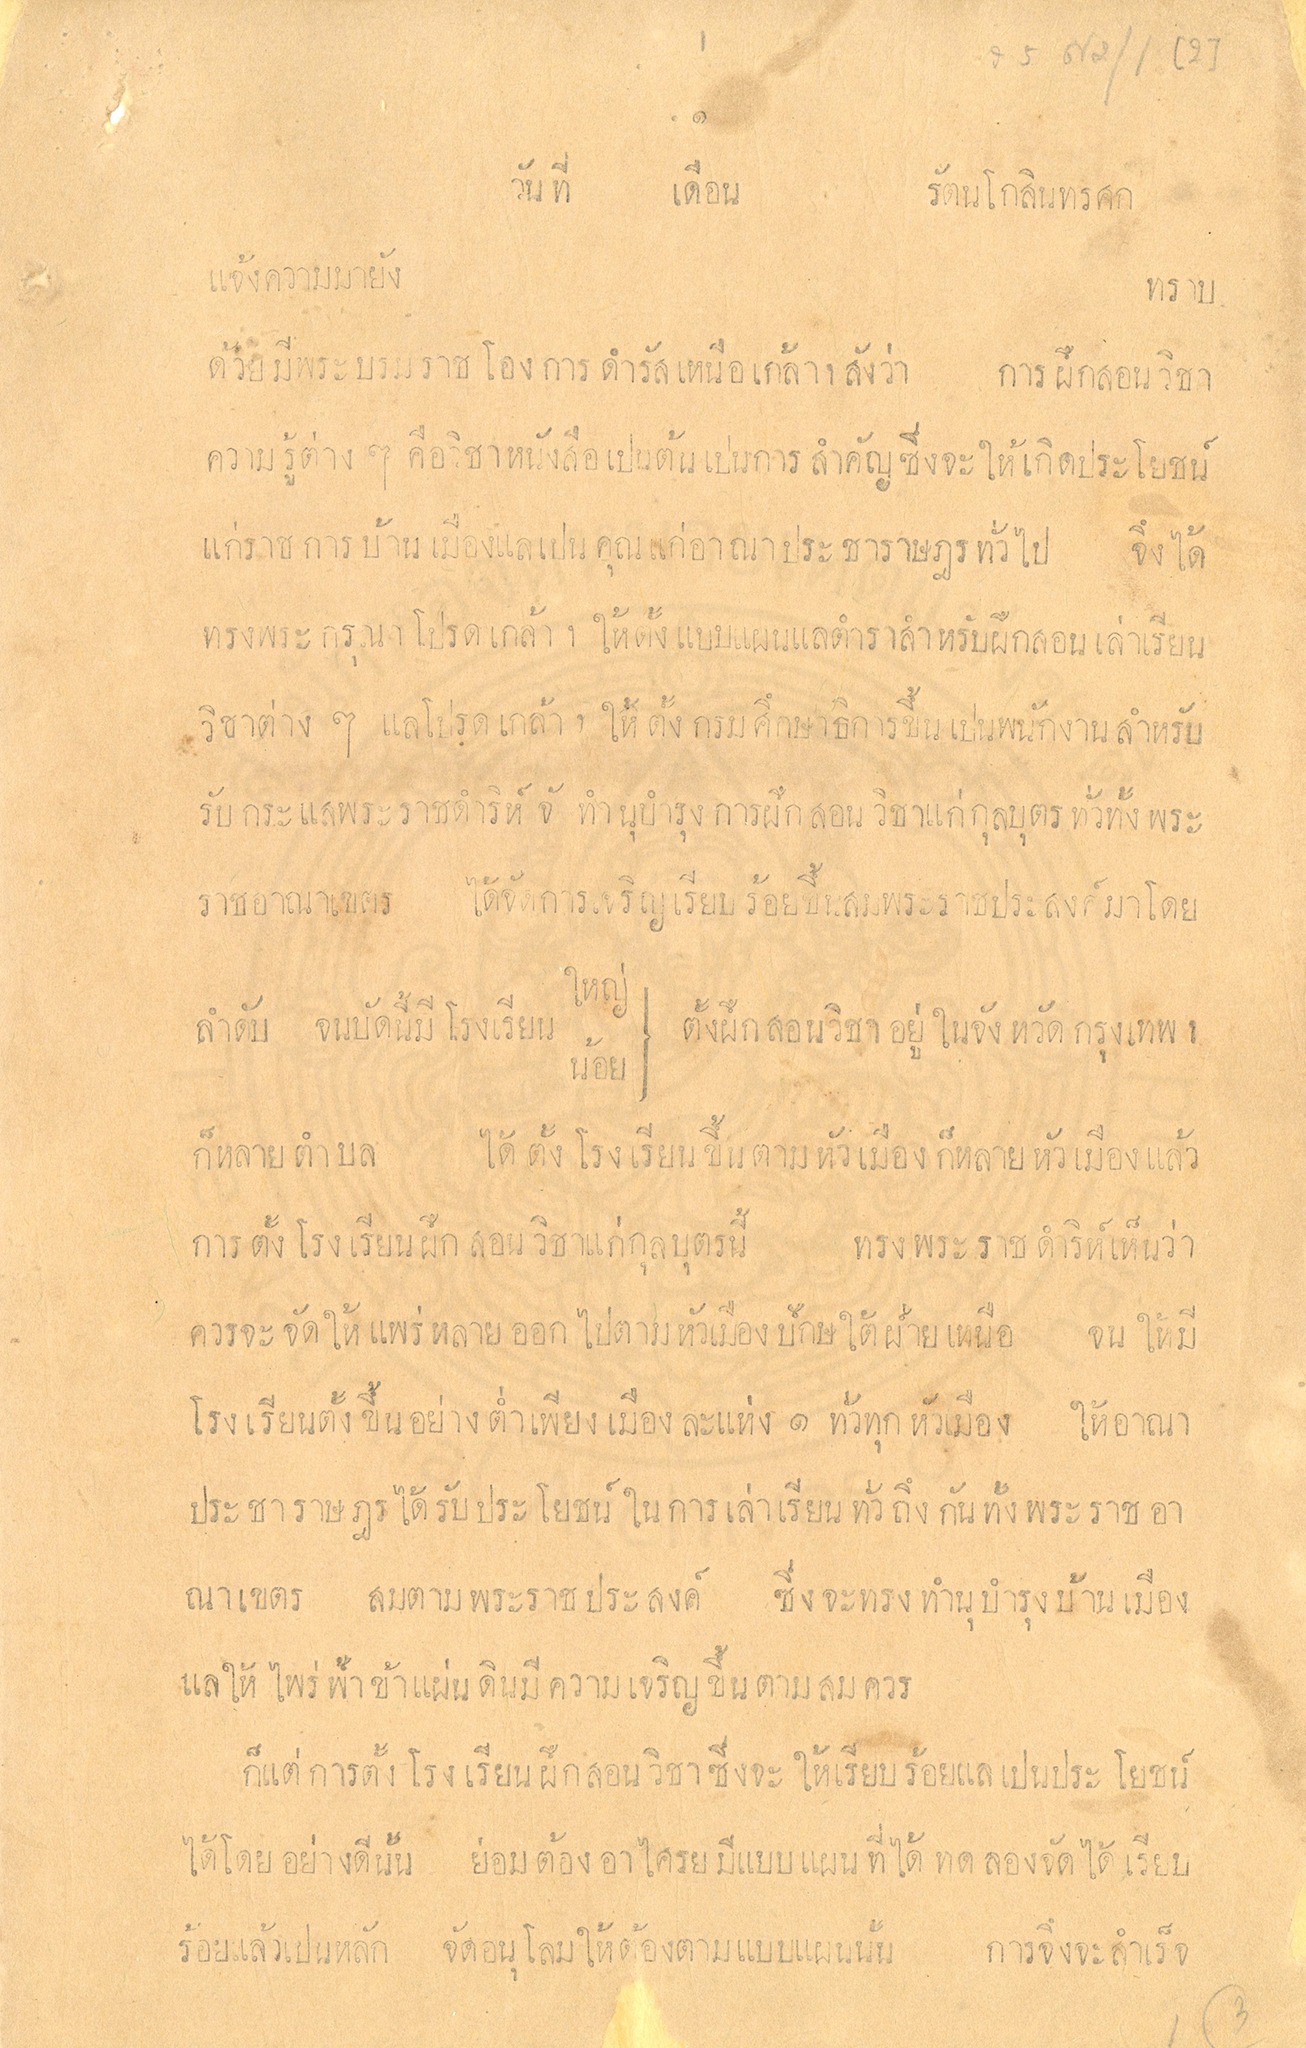 ๑
วันที่ เดือน รัตนโกสินทรศก
แจ้งความมายัง ทราบ
ด้วยมีพระบรมราชโองการดำรัสเหนือเกล้าฯ สั่งว่า การฝึกสอนวิชา
ความรู้ต่าง ๆ คือวิชาหนังสือเปนต้นเปนการสำคัญซึ่งจะให้เกิดประโยชน์
แก่ราชการบ้านเมืองแลเปนคุณแก่อาณาประชาราษฎรทั่วไป จึงได้
ทรงพระกรุณาโปรดเกล้าฯ ให้ตั้งแบบแผนแลตำราสำหรับฝึกสอนเล่าเรียน
วิชาต่าง ๆ แลโปรดเกล้าฯ ให้ตั้งกรมศึกษาธิการขึ้นเปนพนักงานสำหรับ
รับกระแสพระราชดำริห์จั ทำนุบำรุงการฝึกสอนวิชาแก่กุลบุตรทั่วทั้งพระ
ราชอาณาเขตร ได้จัดการเจริญเรียบร้อยขึ้นสมพระราชประสงค์มาโดย
ลำดับ จนบัดนี้มีโรงเรียน ใหญ่ น้อย } ตั้งฝึกสอนวิชาอยู่ในจังหวัดกรุงเทพฯ
ก็หลายตำบล ได้ตั้งโรงเรียนขึ้นตามหัวเมืองก็หลายหัวเมืองแล้ว
การตั้งโรงเรียนฝึกสอนวิชาแก่กุลบุตรนี้ ทรงพระราชดำริห์เห็นว่า
ควรจะจัดให้แพร่หลายออกไปตามหัวเมืองปักษใต้ฝ่ายเหนือ จนให้มี
โรงเรียนตั้งขึ้นอย่างต่ำเพียงเมืองละแห่ง ๑ ทั่วทุกหัวเมือง ให้อาณา
ประชาราษฎรได้รับประโยชน์ในการเล่าเรียนทั่วถึงกันทั้งพระราชอา
ณาเขตร สมตามพระราชประสงค์ ซึ่งจะทรงทำนุบำรุงบ้านเมือง
แลให้ไพร่ฟ้าข้าแผ่นดินมีความเจริญขึ้นตามสมควร
ก็แต่การตั้งโรงเรียนฝึกสอนวิชาซึ่งจะให้เรียบร้อยแลเปนประโยชน์
ได้โดยอย่างดีนั้น ย่อมต้องอาไศรยมีแบบแผนที่ได้ทดลองจัดได้เรียบ
ร้อยแล้วเปนหลัก จัดอนุโลมให้ต้องตามแบบแผนนั้น การจึงจะสำเร็จ
๓